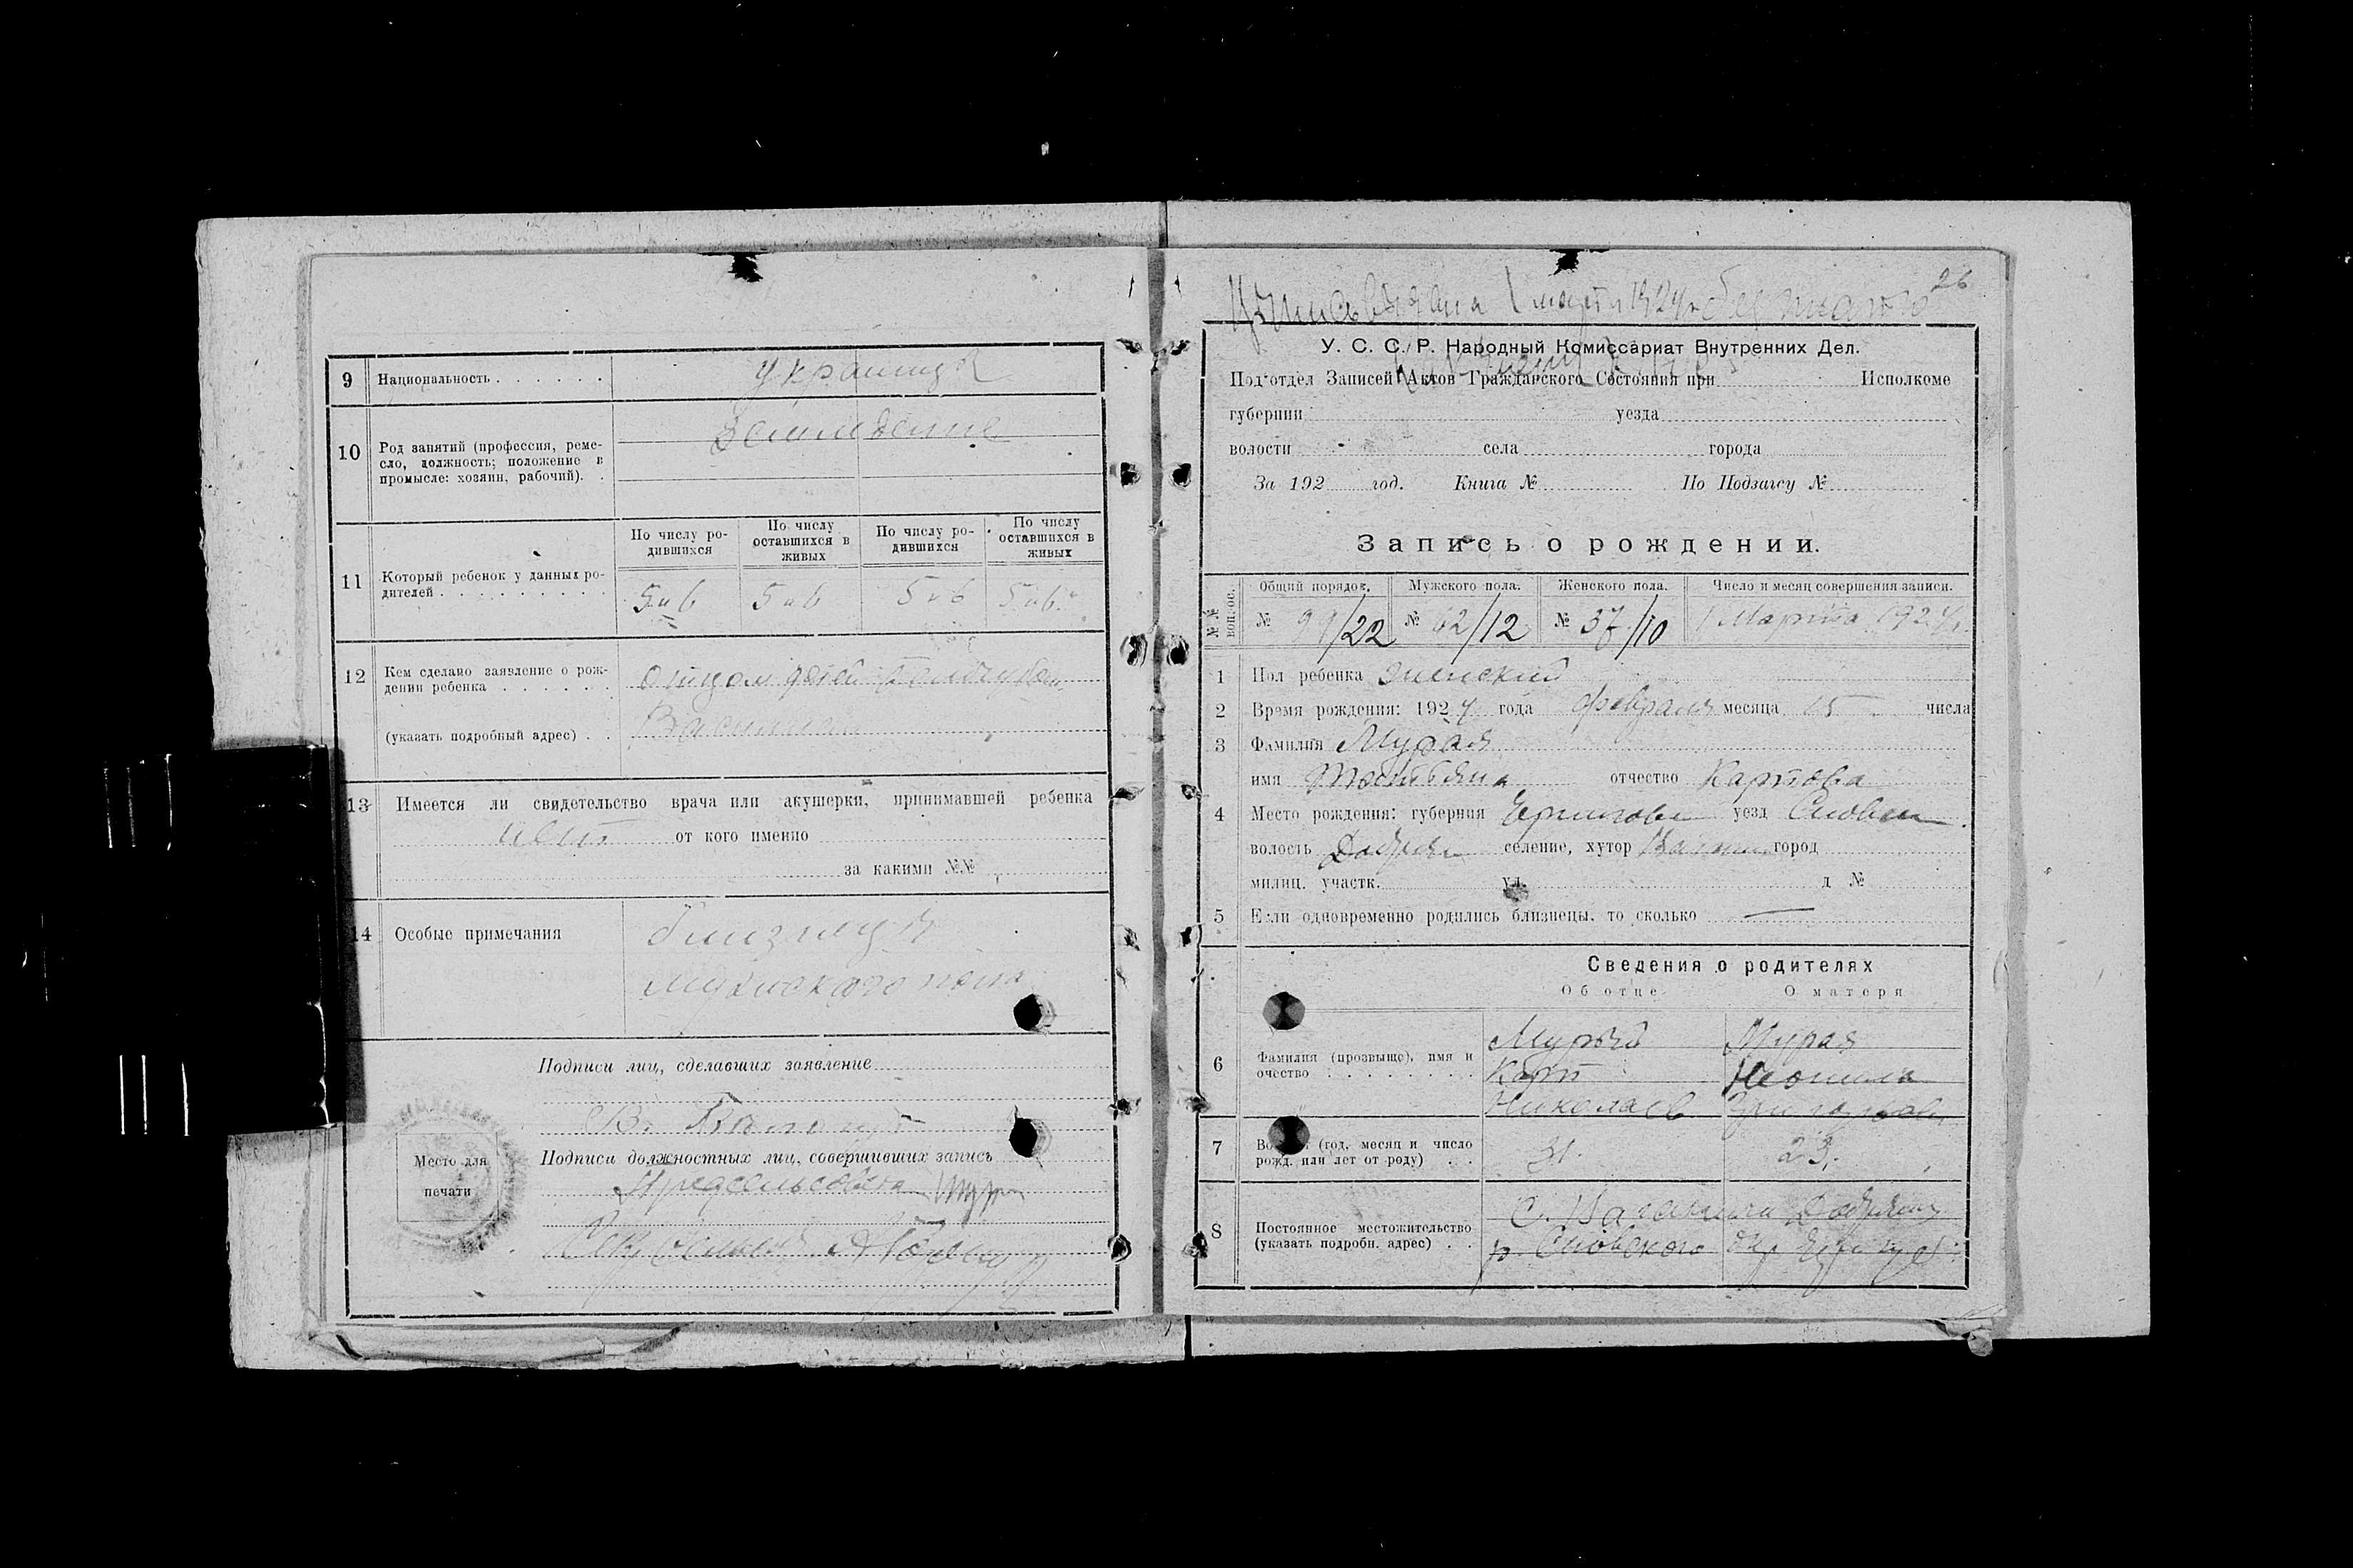 9 Национальность . . . . . . украинцы
10 Род занятий (профессия, реме-
сло, должность; положение в
промысле: хозяин, рабочий). .
По числу ро-
дившихся
По числу
оставшихся в
живых
По числу ро-
дившихся
По числу
оставшихся в
живых
11 Который ребенок у данных ро-
дителей . . . . . . . . . .
5 и 6 5 и 6 5 и 6 5 и 6
12 Кем сделано заявление о рож-
дении ребенка . . . . . . отцом детей
(указать подробный адрес) . . Василием
13 Имеется ли свидетельство врача или акушерки, принимавшей ребенка
нет от кого именно
за какими №№
14 Особые примечания близнецы
мужского пола
Подписи лиц, сделавших заявление
В.
Подписи должностных лиц, совершивших запись
Предсельсовета
Место для
печати
26
марта 1924
У. С. С. Р. Народный Комиссариат Внутренних Дел.
Подотдел Записей Актов Гражданского Состояния при Исполкоме
губернии уезда
волости села города
За 192 год. Книга № По Подзагсу №
Запись о рождении.
№ № вопрос.
Общий порядок. Мужского пола. Женского пола. Число и месяц совершения записи.
№ 99/22 № 62/12 № 37/10 1 Марта 1924
1 Пол ребенка женский
2 Время рождения: 1924 года февраля месяца 15 числа
3 Фамилия Мурая
имя Татьяна отчество Карпова
4 Место рождения: губерния Чернигов уезд Сновск
волость Добрян селение, хутор город
милиц. участк. ул. д №
5 Если одновременно родились близнецы, то сколько —
Сведения о родителях
Об отце О матери
6 Фамилия (прозвыще), имя и
очество . . . . . . . .
Мурый Мурая
Карп
Николаев Григорьев
7 (год, месяц и число
рожд. или лет от роду) . .
31. 23.
8 Постоянное местожительство
(указать подробн. адрес) . .
С.
р. Сновского окр